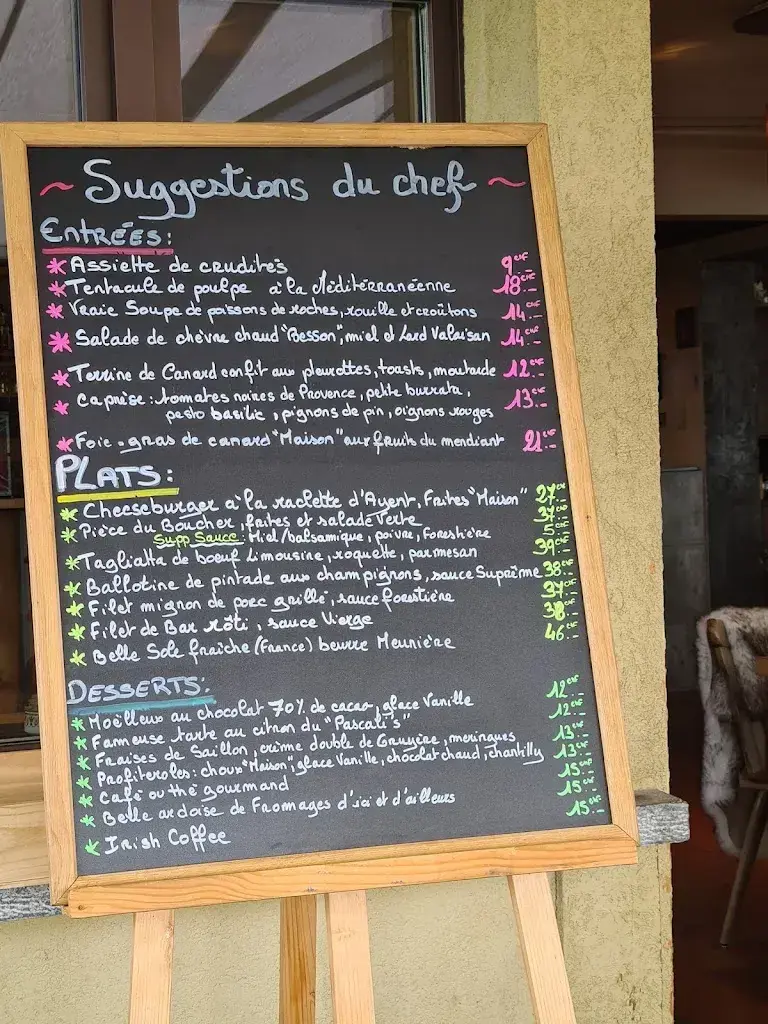 ~ Suggestions du chef ~
ENTRÉES:
* Assiette de crudités 9.- CHF
* Tentacule de poulpe à la Méditérranéenne 18.- CHF
* Vraie Soupe de poissons de roches, rouille et croûtons 14.- CHF
* Salade de chèvre chaud "Besson", miel et Lard Valaisan 14.- CHF
* Terrine de Canard confit aux pleurottes, toasts, moutarde 12.- CHF
* Caprése: tomates noires de Provence, petite burrata, 13.- CHF
pesto basilic, pignons de pin, oignons rouges
* Foie-gras de canard "Maison" aux fruits du mendiant 21.- CHF
PLATS:
* Cheeseburger à la raclette d'Ayent, Frites "Maison" 27.- CHF
* Pièce du Boucher, frites et salade Verte 37.- CHF
Supp Sauce: Miel/balsamique, poivre, Forestière 5.- CHF
* Tagliatta de boeuf Limousine, roquette, parmesan 39.- CHF
* Ballotine de pintade aux champignons, sauce Suprême 38.- CHF
* Filet mignon de porc grillé, sauce forestière 37.- CHF
* Filet de Bar rôti, sauce Vierge 38.- CHF
* Belle Sole fraîche (France) beurre Meunière 46.- CHF
DESSERTS:
* Moëlleux au chocolat 70% de cacao, glace Vanille 12.- CHF
* Fameuse tarte au citron du "Pascali's" 12.- CHF
* Fraises de Saillon, crème double de Gruyère, meringues 13.- CHF
* Profiteroles: choux "Maison", glace Vanille, chocolat chaud, chantilly 13.- CHF
* Café ou thé gourmand 15.- CHF
* Belle ardoise de Fromages d'ici et d'ailleurs 15.- CHF
* Irish Coffee 15.- CHF